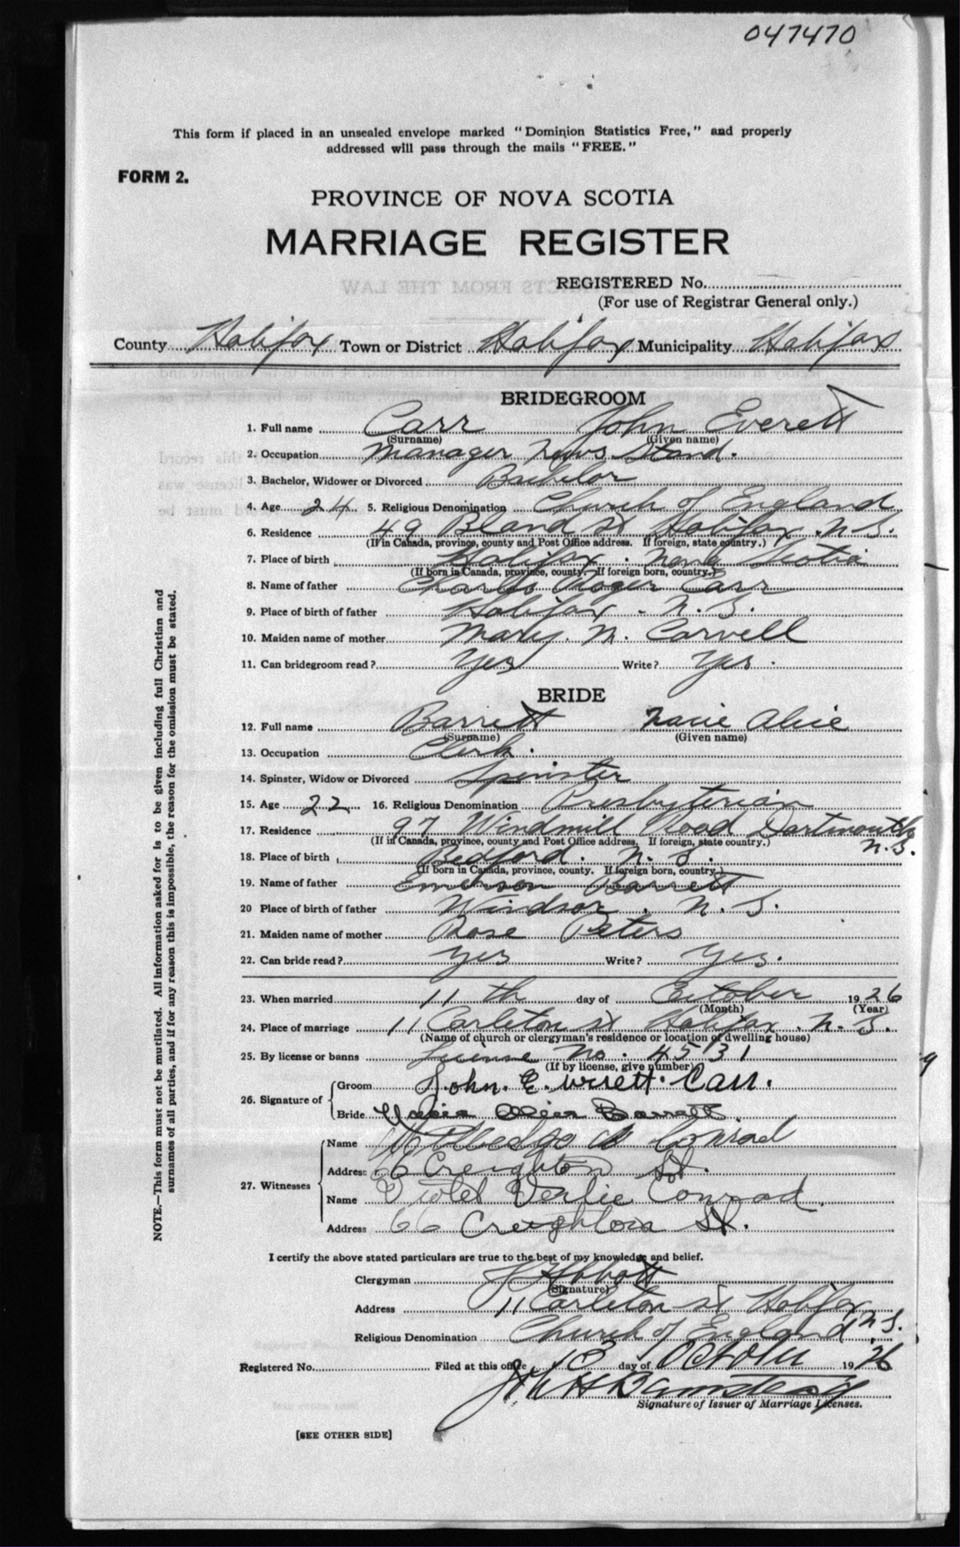 047470
This form if placed in an unsealed envelope marked "Dominion Statistics Free," and properly
addressed will pass through the mails "FREE."
FORM 2.
PROVINCE OF NOVA SCOTIA
MARRIAGE REGISTER
REGISTERED No.
(For use of Registrar General only.)
County Halifax Town or District Halifax Municipality Halifax
BRIDEGROOM
1. Full name Carr John Everett
(Surname) (Given name)
2. Occupation Manager News Stand.
3. Bachelor, Widower or Divorced Bachelor
4. Age 24 5. Religious Denomination Church of England
6. Residence 49 Bland St Halifax, N.S.
(If in Canada, province, county and Post Office address. If foreign, state country.)
7. Place of birth Halifax Nova Scotia
(If born in Canada, province, county. If foreign born, country.)
8. Name of father Charles Roger Carr
9. Place of birth of father Halifax. N.S.
10. Maiden name of mother Mary. M. Carvell
11. Can bridegroom read? Yes Write? Yes.
BRIDE
12. Full name Barrett Alice
(Surname) (Given name)
13. Occupation Clerk.
14. Spinster, Widow or Divorced Spinster
15. Age 22 16. Religious Denomination Presbyterian
17. Residence 97 Windmill Road Dartmouth
N.S.
(If in Canada, province, county and Post Office address. If foreign, state country.)
18. Place of birth Bedford. N.S.
(If born in Canada, province, county. If foreign born, country.)
19. Name of father Emerson Barrett
20 Place of birth of father Windsor. N.S.
21. Maiden name of mother Rose Peters
22. Can bride read? Yes Write? Yes.
23. When married 11th day of October 1926
(Month) (Year)
24. Place of marriage 11 Carleton St Halifax. N.S.
(Name of church or clergyman's residence or location of dwelling house)
25. By license or banns License No. 4531
(If by license, give number)
26. Signature of
Groom John. Everett. Carr.
Bride Alice Barrett
27. Witnesses
Name Conrad
Address 6 Creighton St.
Name Violet Verlie Conrad
Address 66 Creighton St.
I certify the above stated particulars are true to the best of my knowledge and belief.
Clergyman Abbott
(Signature)
Address 11 Carleton St Halifax
N.S.
Religious Denomination Church of England
Registered No. Filed at this office 13 day of October 1926
Signature of Issuer of Marriage Licenses.
[SEE OTHER SIDE]
NOTE.—This form must not be mutilated. All information asked for is to be given including full Christian and
surnames of all parties, and if for any reason this is impossible, the reason for the omission must be stated.